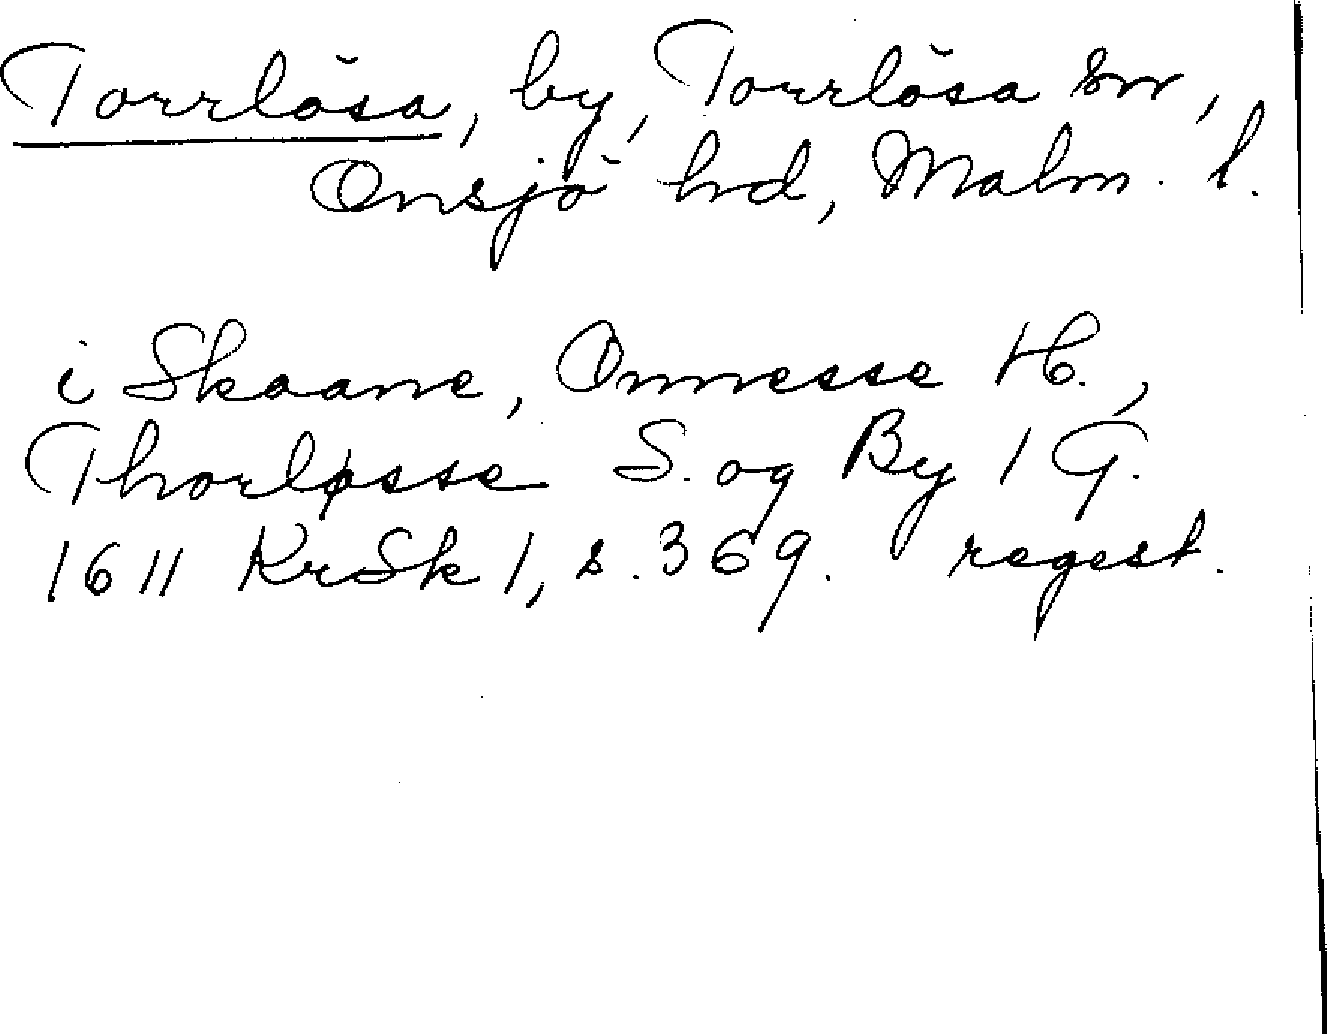 Torrlösa, by, Torrlösa sn,
Onsjö hd, Malm. l.
i Skaane, Onnesse H.,
Thorløsse S. og By 1 G.
1611 KrSk 1, s. 369. regest.